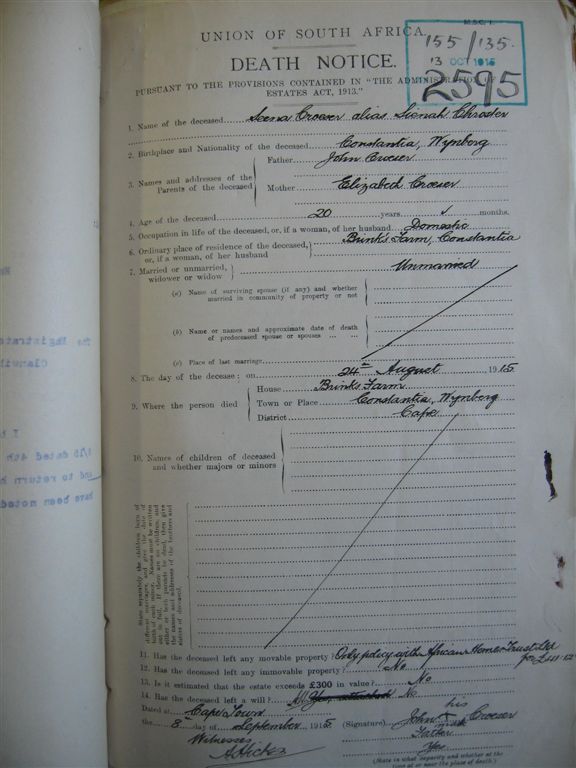 M.S.C. 1.
UNION OF SOUTH AFRICA.
155/135.
13 OCT 1915
2595
DEATH NOTICE.
PURSUANT TO THE PROVISIONS CONTAINED IN "THE ADMINISTRATION OF
ESTATES ACT, 1913."
1. Name of the deceased Seena Croeser alias Sienah Chroster
2. Birthplace and Nationality of the deceased Constantia, Wynberg
3. Names and addresses of the Parents of the deceased
Father John Croeser
Mother Elizabeth Croeser
4. Age of the deceased 20 years months.
5. Occupation in life of the deceased, or, if a woman, of her husband Domestic
6. Ordinary place of residence of the deceased, or, if a woman, of her husband Brink's Farm, Constantia
7. Married or unmarried, widower or widow Unmarried
(a) Name of surviving spouse (if any) and whether
married in community of property or not
(b) Name or names and approximate date of death
of predeceased spouse or spouses ... ...
(c) Place of last marriage
8. The day of the decease; on 24th August 1915
9. Where the person died
House Brinks Farm
Town or Place Constantia, Wynberg
District Cape
10. Names of children of deceased
and whether majors or minors
State separately the children born of
different marriages, and give the date of
birth of each minor. Names must be written
out in full. If there are no children, and
either or both parents be dead, then give
the names and addresses of the brothers and
sisters of deceased.
11. Has the deceased left any movable property? Only policy with African Homes Trust Ltd
for £
12. Has the deceased left any immovable property? No
13. Is it estimated that the estate exceeds £300 in value? No
14. Has the deceased left a will? No
Dated at Cape Town
the 8th day of September 1915 (Signature) John his X mark Croeser
Witnesses
Father
Yes
(State in what capacity and whether at the
time at or near the place of death.)
The Magistrate
1/15 dated 4th
and to return h
have been noted